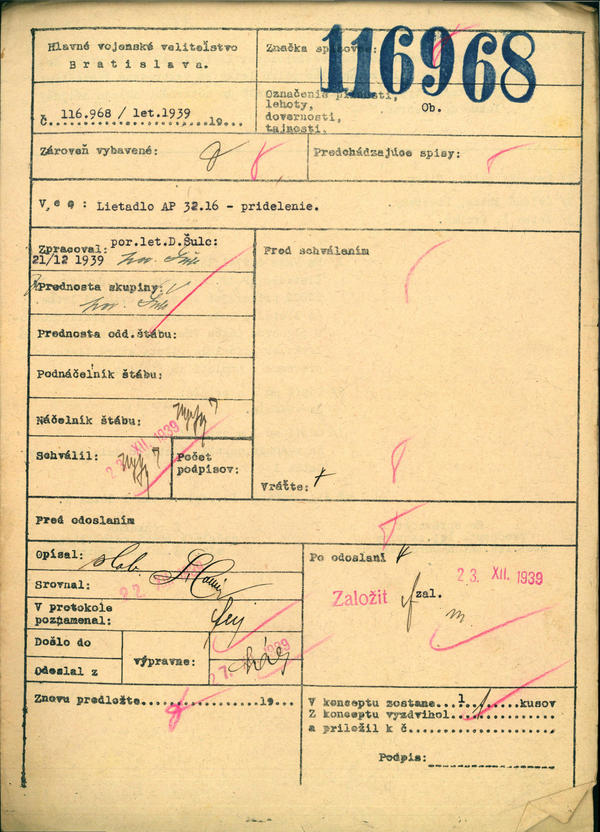 Hlavné vojenské veliteľstvo
Bratislava.
Značka spisová:
116968
116.968 / let.1939
Č.............................19...
Označenia
lehoty,
dovernosti,
tajnosti.
Ob.
Zároveň vybavené:
Predchádzajúce spisy:
Vec: Lietadlo AP 32.16 - pridelenie.
Zpracoval: por.let.D.Šulc:
21/12 1939
Pred schválením
Prednosta skupiny:
Prednosta odd.štábu:
Podnáčelník štábu:
Náčelník štábu:
Schválil:
23. XII. 1939
Počet
podpisov:
Vráťte:
Pred odoslaním
Opísal:
Srovnal:
V protokole
poznamenal:
Došlo do
Odeslal z
výpravne:
Po odoslaní
23. XII. 1939
Založit
zal.
Znovu predložte....................19...
V konceptu zostane..1.......kusov
Z konceptu vyzdvihol...............
a priložil k č.....................
Podpis: